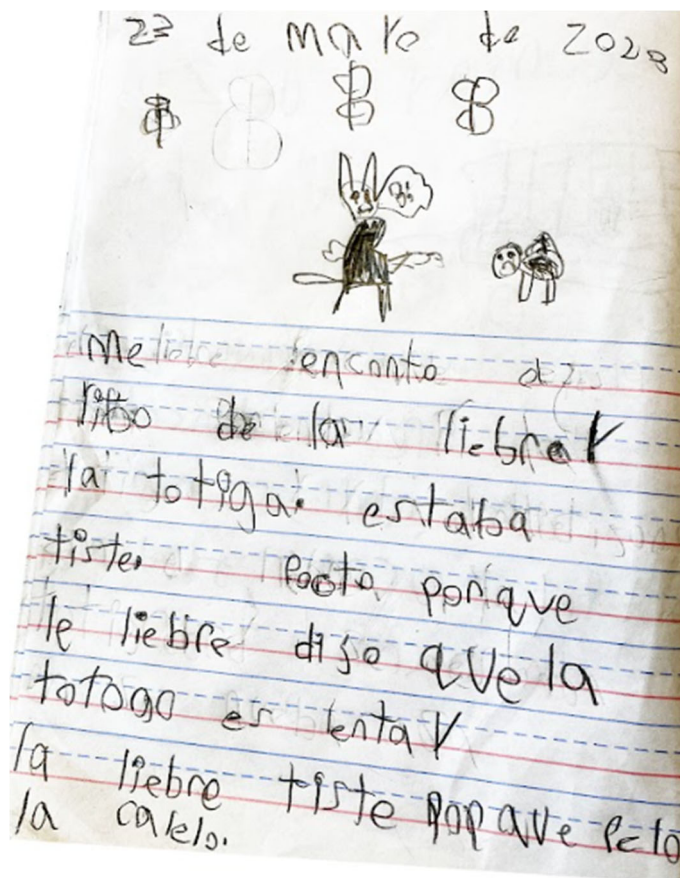 23 de maro de 2023
me encanto
libo de la liebre Y
la totiga. estaba
tiste. porque
le liebre diso que la
totogo es lenta Y
la liebre tiste porque peto
la carelo.